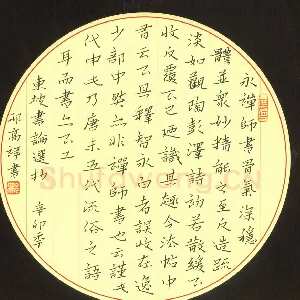 永禪師書骨氣深穩
體並衆妙精能之至反造疏
淡如觀陶彭澤詩初若散緩不
收反覆不已迺識其趣今法帖中
有云不具釋智永白者誤收在逸
少部中然亦非禪師書也云謹此
代申此乃唐末五代流俗之語
耳而書亦不工
東坡書論選抄 辛卯季
書